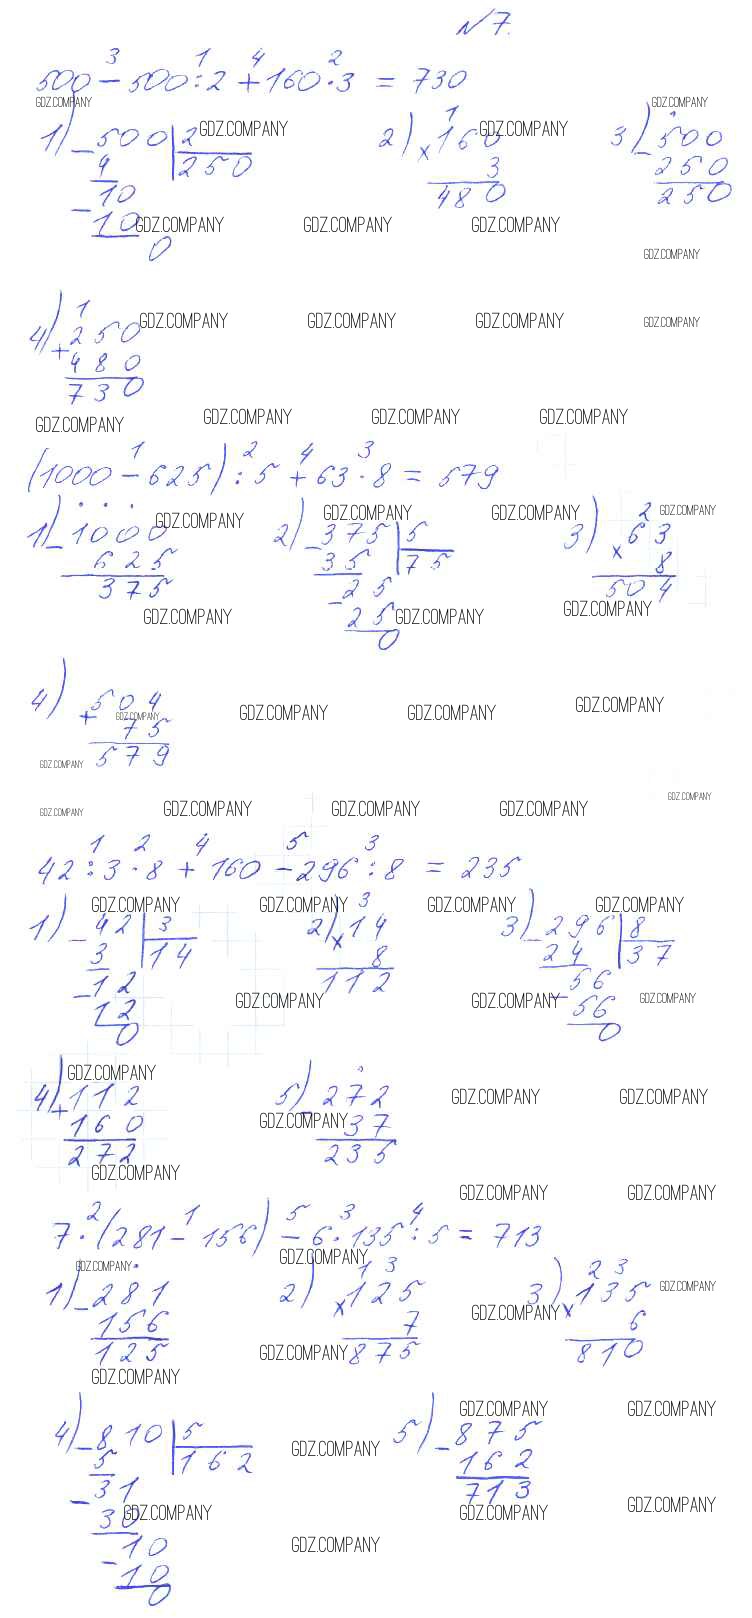 №7.
3 1 4 2
500 - 500 : 2 + 160 · 3 = 730
GDZ.COMPANY GDZ.COMPANY
1) - 500 | 2 GDZ.COMPANY 2) 1 × 160 GDZ.COMPANY 3) - 500
4 250 3 250
10 480 250
- 10 GDZ.COMPANY GDZ.COMPANY GDZ.COMPANY
0 GDZ.COMPANY
1
4) + 250 GDZ.COMPANY GDZ.COMPANY GDZ.COMPANY GDZ.COMPANY
480
730
GDZ.COMPANY GDZ.COMPANY GDZ.COMPANY GDZ.COMPANY
1 2 4 3
(1000 - 625) : 5 + 63 · 8 = 579
1) - 1000 GDZ.COMPANY 2) - 375 | 5 GDZ.COMPANY GDZ.COMPANY 3) 2 × 63 GDZ.COMPANY
625 35 75 8
375 25 504
GDZ.COMPANY - 25 GDZ.COMPANY GDZ.COMPANY
0
4) + 504 GDZ.COMPANY GDZ.COMPANY GDZ.COMPANY GDZ.COMPANY
75
579
GDZ.COMPANY
GDZ.COMPANY GDZ.COMPANY GDZ.COMPANY GDZ.COMPANY GDZ.COMPANY
1 2 4 5 3
42 : 3 · 8 + 160 - 296 : 8 = 235
GDZ.COMPANY GDZ.COMPANY GDZ.COMPANY GDZ.COMPANY
1) - 42 | 3 2) 3 × 14 3) - 296 | 8
3 14 8 24 37
- 12 112 - 56
12 GDZ.COMPANY GDZ.COMPANY 56 GDZ.COMPANY
0 0
GDZ.COMPANY
4) + 112 5) - 272 GDZ.COMPANY GDZ.COMPANY
160 GDZ.COMPANY 37
272 235
GDZ.COMPANY GDZ.COMPANY GDZ.COMPANY
2 1 5 3 4
7 · (281 - 156) - 6 · 135 : 5 = 713
GDZ.COMPANY GDZ.COMPANY
1) - 281 2) 1 3 × 125 3) 2 3 × 135 GDZ.COMPANY
156 7 GDZ.COMPANY 6
125 GDZ.COMPANY 875 810
GDZ.COMPANY
GDZ.COMPANY GDZ.COMPANY
4) - 810 | 5 GDZ.COMPANY 5) - 875
5 162 162
31 713
- 30 GDZ.COMPANY GDZ.COMPANY GDZ.COMPANY
10 GDZ.COMPANY
- 10
0